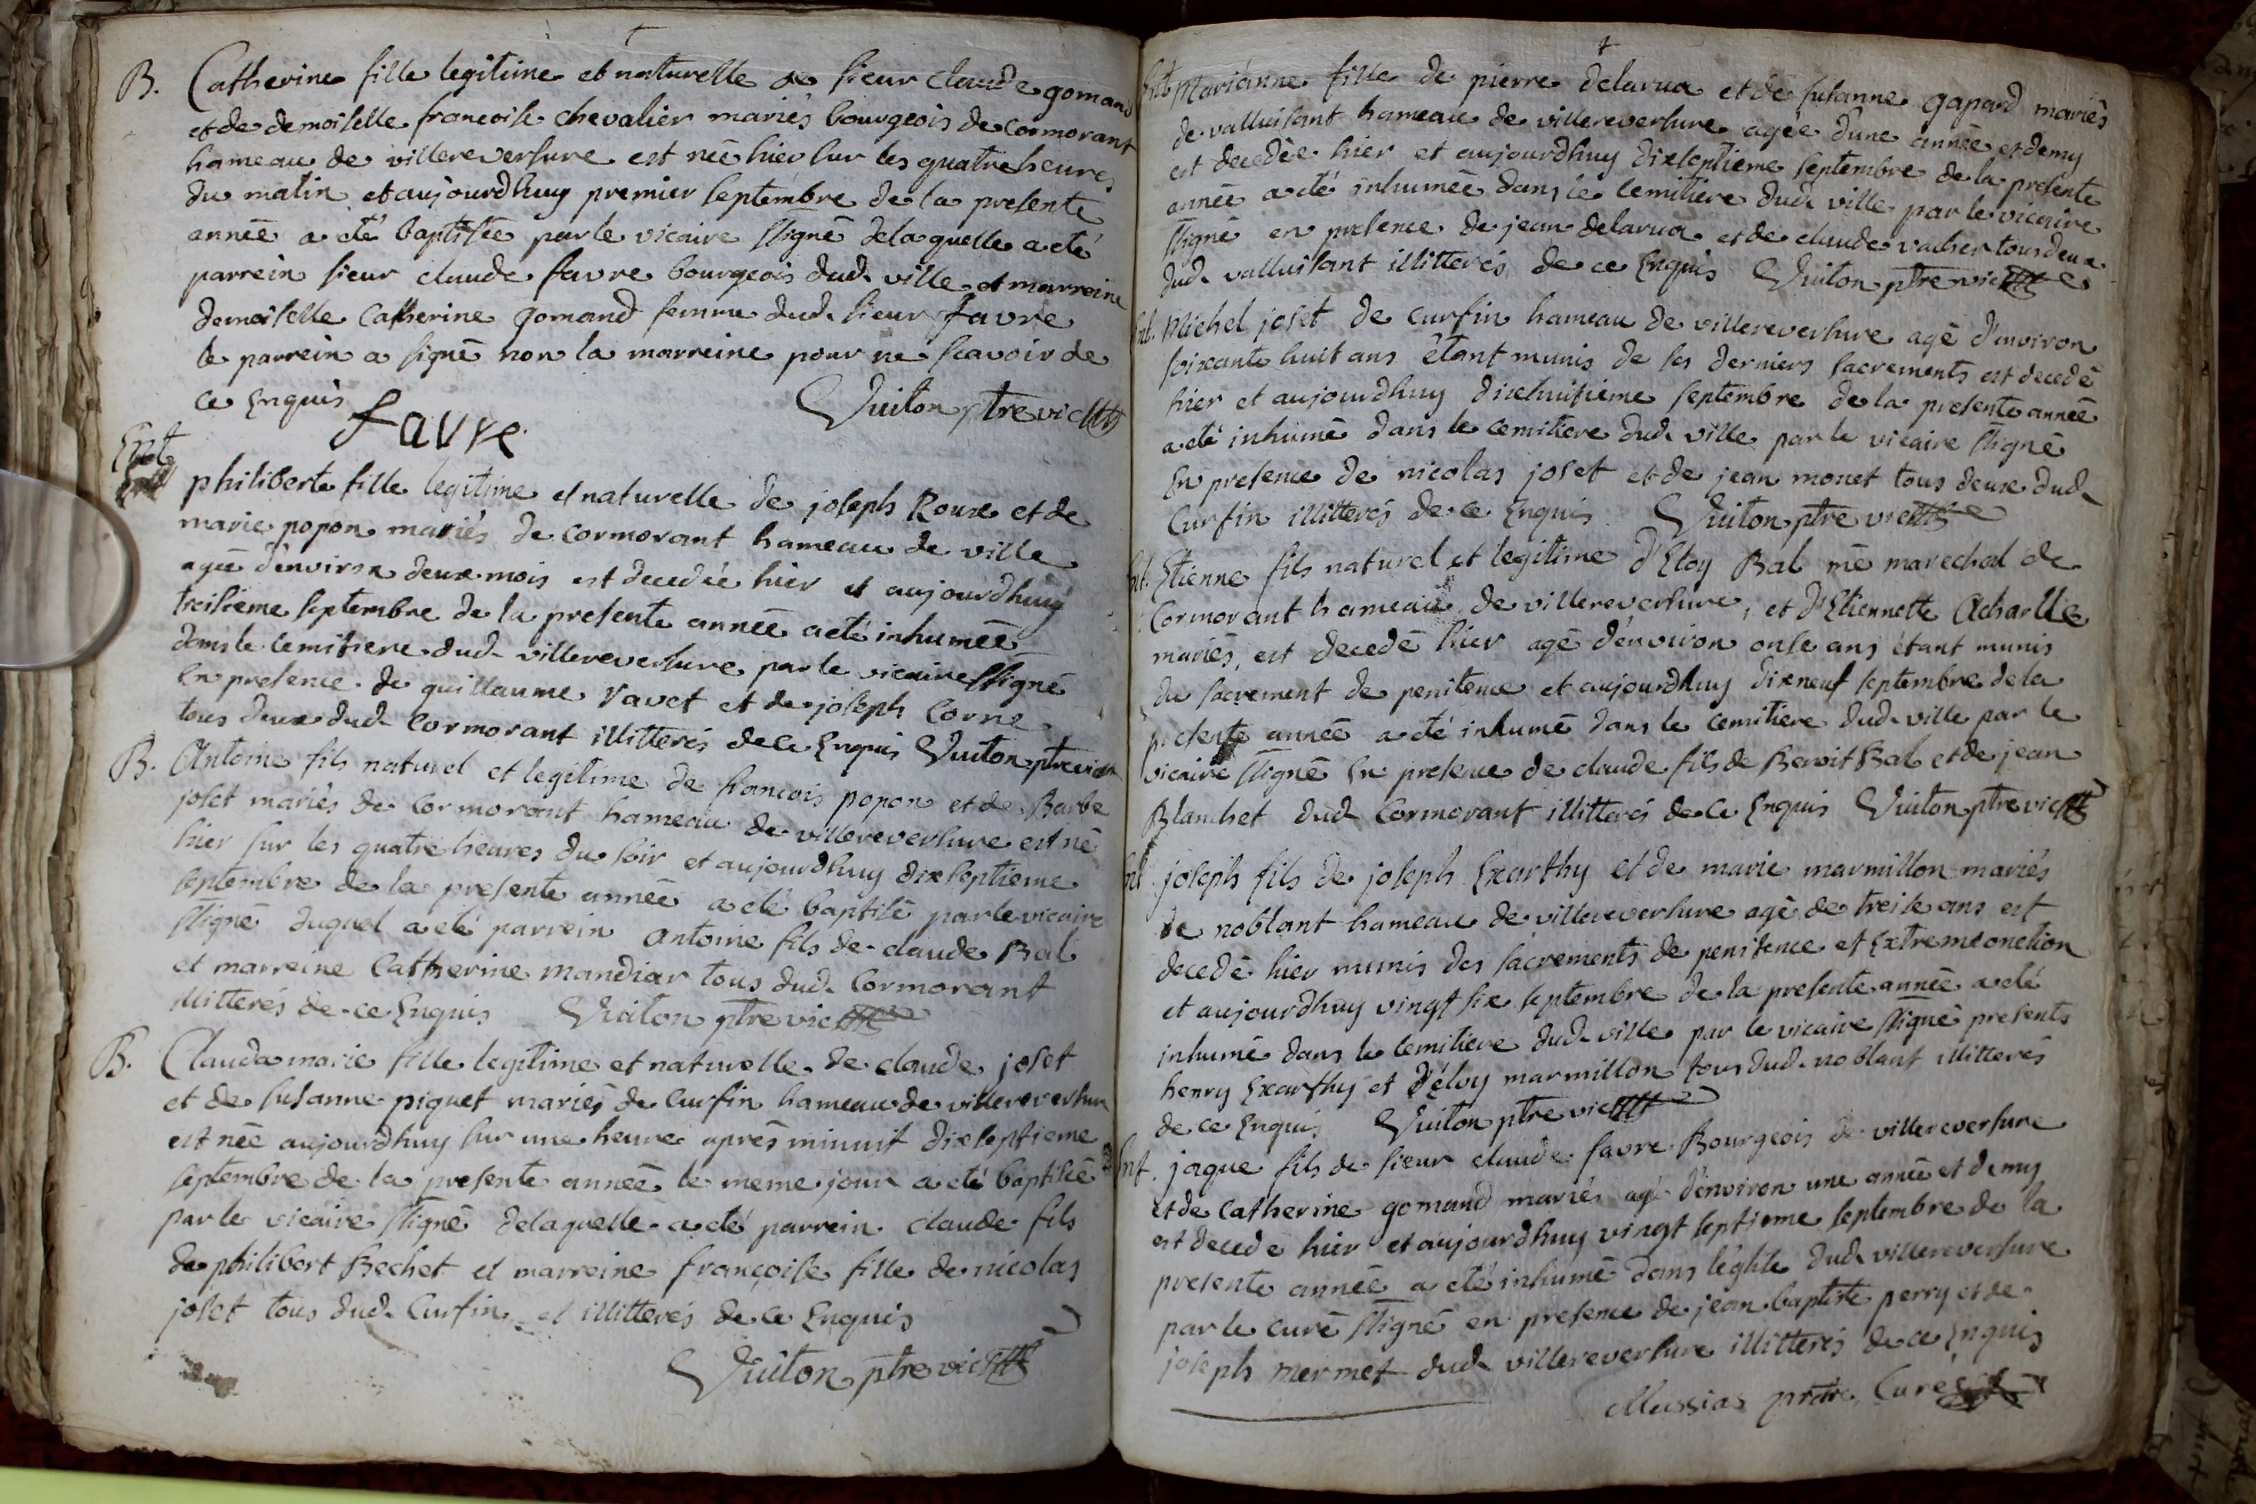 B. Catherine fille legitime et naturelle de sieur claude gomand
et de demoiselle francoise chevalier mariés bourgeois de cormorant
hameau de villereversure est née hier sur les quatre heures
du matin et aujourdhuy premier septembre de la presente
année a eté baptisée par le vicaire ssigné delaquelle a eté
parrein sieur claude favre bourgeois dud. ville et marreine
demoiselle Catherine gomand femme dud. sieur favre
le parrein a signé non la marreine pour ne scavoir de
ce Enquis Vuiton ptre vic
favre
Ent
philiberte fille legitime et naturelle de joseph Roux et de
marie popon mariés de cormorant hameau de ville
agée d'environ deux mois est decedée hier et aujourdhuy
treisieme septembre de la presente année a eté inhumée
dans le cemitiere dud. villereversure par le vicaire ssigné
En presence de guillaume ravet et de joseph Corne
tous deux dud. Cormorant illitterés de ce Enquis Vuiton ptre vic
B. Antoine fils naturel et legitime de francois popon et de Barbe
joset mariés de Cormorant hameau de villereversure est né
hier sur les quatre heures du soir et aujourdhuy dixseptieme
septembre de la presente année a eté baptisé par le vicaire
ssigné duquel a eté parrein antoine fils de claude Bal
et marreine Catherine mandiar tous dud. Cormorant
illitterés de ce Enquis Vuiton ptre vic
B. Clauda marie fille legitime et naturelle de claude joset
et de susanne piquet mariés de Curfin hameau de villereversure
est née aujourdhuy sur une heure aprés minuit dixseptieme
septembre de la presente année le meme jour a eté baptisée
par le vicaire ssigné delaquelle a eté parrein claude fils
de philibert Bechet et marreine françoise fille de nicolas
joset tous dud. Curfin et illitterés de ce Enquis
Vuiton ptre vic
Ent Marianne fille de pierre delarua et de susanne gapard mariés
de valluisant hameau de villereversure agée d'une année et demy
est decedée hier et aujourdhuy dixseptieme septembre de la presente
année a eté inhumée dans le cemitiere dud. ville par le vicaire
ssigné en presence de jean delarua et de claude vacher tous deux
dud. valluisant illitterés de ce Enquis Vuiton ptre vic
Ent. Michel joset de Curfin hameau de villereversure agé d'environ
soixante huit ans étant munis de ses derniers sacrements est decedé
hier et aujourdhuy dixhuitieme septembre de la presente année
a eté inhumé dans le cemitiere dud. ville par le vicaire ssigné
En presence de nicolas joset et de jean monet tous deux dud.
Curfin illitterés de ce Enquis Vuiton ptre vic
Ent. Etienne fils naturel et legitime d'Eloy Bal me marechal de
Cormorant hameau de villereversure, et d'Etiennette Acharlie
mariés, est decedé hier agé d'environ onse ans étant munis
du sacrement de penitence et aujourdhuy dixneuf septembre de la
presente année a eté inhumé dans le cemitiere dud. ville par le
vicaire ssigné En presence de claude fils de Benoit Bal et de jean
Blanchet dud. Cormorant illitterés de ce Enquis Vuiton ptre vic
Ent. joseph fils de joseph Exarthy et de marie marmillon mariés
de noblant hameau de villereversure agé de treise ans est
decedé hier munis des sacrements de penitence et Extremeonction
et aujourdhuy vingt six septembre de la presente année a eté
inhumé dans le cemitiere dud. ville par le vicaire ssigné presents
henry Exarthy et d'éloy marmillon tous dud. noblant illitterés
de ce Enquis Vuiton ptre vic
Ent. jaque fils de sieur claude favre Bourgeois de villereversure
et de Catherine gomand mariés agé d'environ une année et demy
est decedé hier et aujourdhuy vingt septieme septembre de la
presente année a eté inhumé dans léglise dud. villereversure
par le curé ssigné en presence de jean baptiste perry et de
joseph mermet dud. villereversure illitterés de ce Enquis
Massias prtre Curé